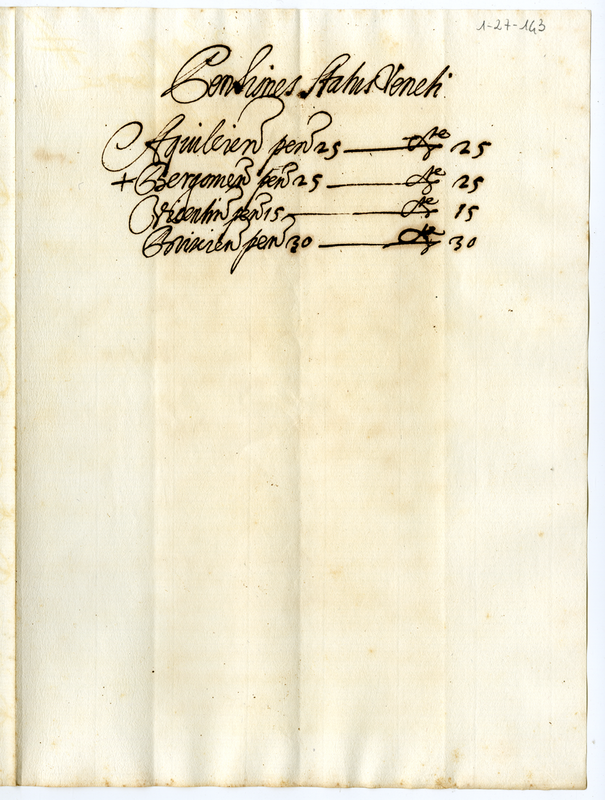 1-27-143
Pensiones Status Veneti
Aquileien pen 25 25
+ Bergomen pen 25 25
Vicentin pen 15 15
Brixien pen 30 30